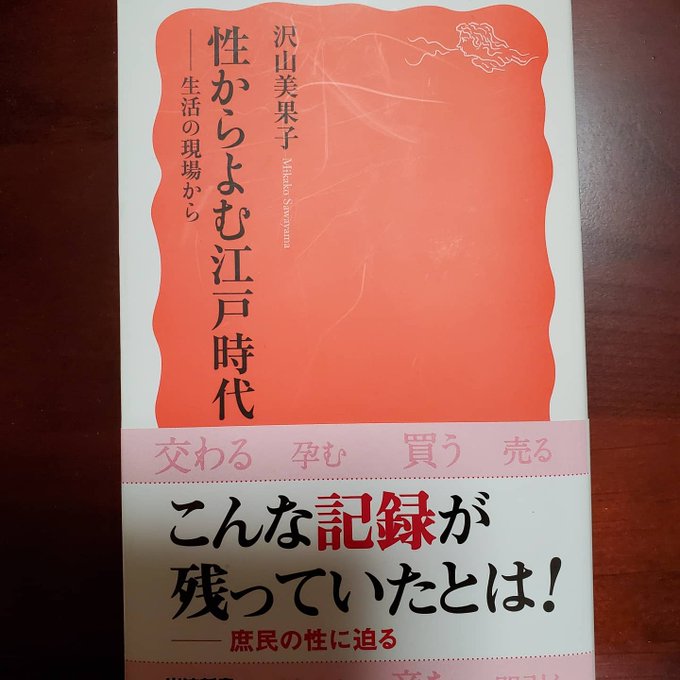 沢山美果子
Mikako Sawayama
性からよむ江戸時代
――生活の現場から
交わる 孕む 買う 売る
こんな記録が
残っていたとは!
――庶民の性に迫る